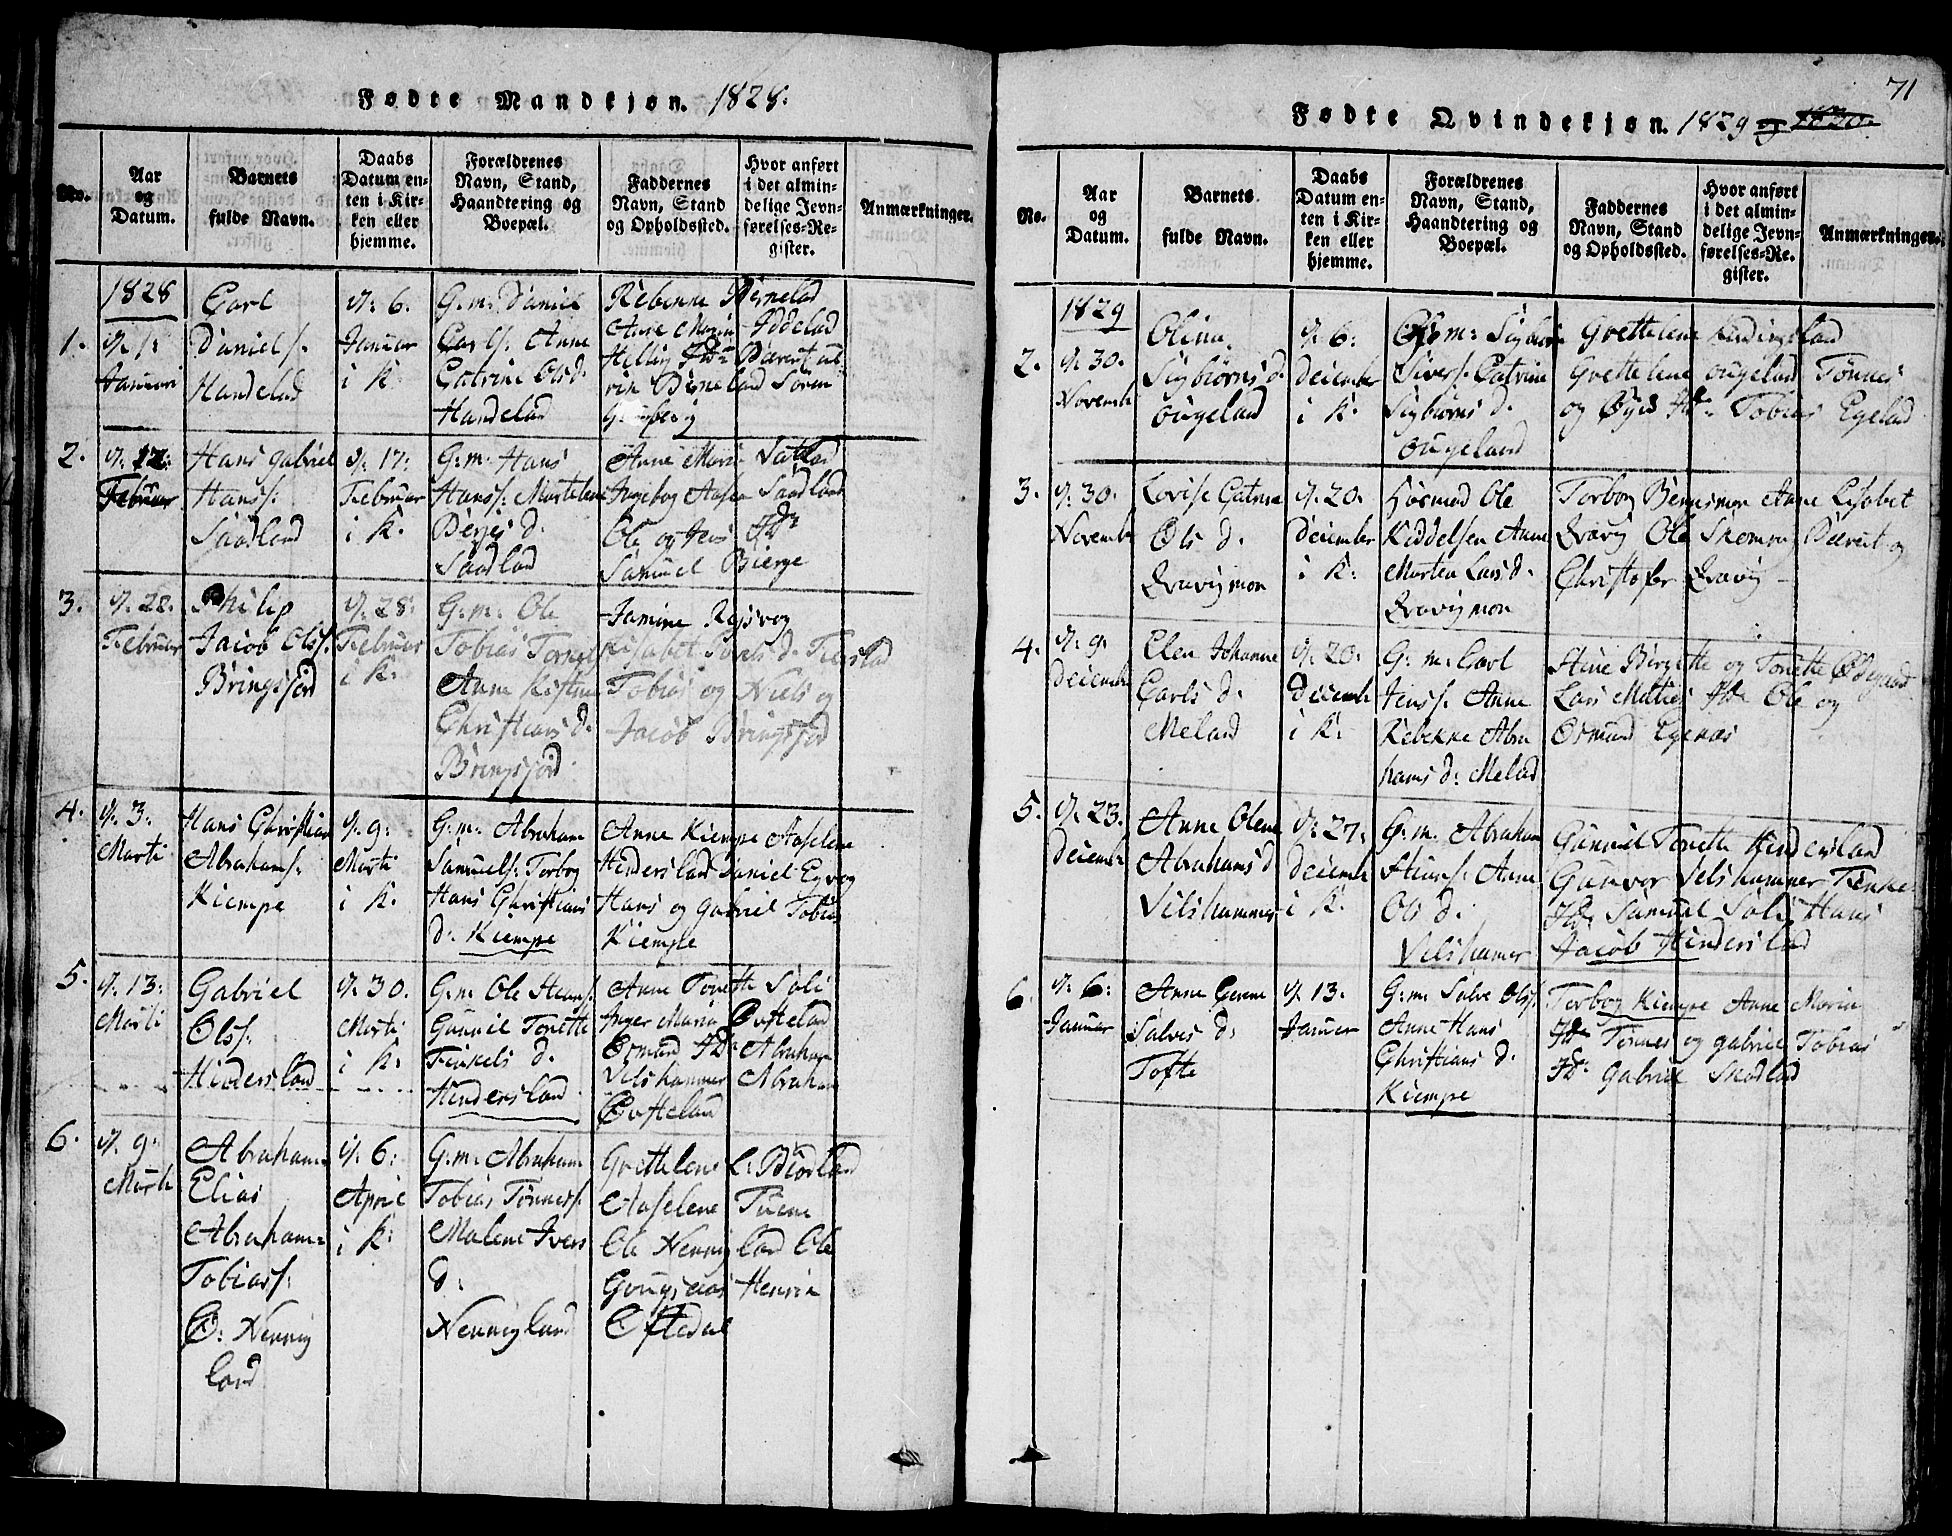 Fødte Mandkjøn. 1828.
No.
Aar
og
Datum.
Barnets
fulde Navn.
Daabs
Datum en-
ten i Kir-
ken eller
hjemme.
Forældrenes
Navn, Stand,
Haandtering og
Boepæl.
Faddernes
Navn, Stand
og Opholdssted.
Hvor anført
i det almin-
delige Jevn-
førelses-Re-
gister.
Anmærkninger.
1.
1828
d. 1:
Januari
Carl
Daniels.
Handelad
d. 6.
Januar
i K.
G: m: Daniel
Carls. Anne
Catrine Ols d.
Handelad
Rebekke Birnelad
Anne Maria Iddelad
Birneland Søren
2.
d. 12:
Februar
Hans Gabriel
Hanss.
Saadland
d. 17:
Februar
i K.
G: m: Hans
Hanss. Martelene
Berges d.
Saadlad
Anne Maria Saatlad
Ingebog Aasen Saadland
Ole og Jens Jd:
Samuel Bierge
3.
d. 22.
Februar
Philip
Jacob Olss.
Bringsjord
d. 28.
Februar
i K.
G: m: Ole
Tobias Tornes
Anne Kistine
Christians d.
Bringsjord
Jamine Rosvog
Lisabet Povels d.
Tobias og Niels og
Jacob Bringsjord
4.
d. 3.
Marti
Hans Christian
Abrahams.
Kiempe
d. 9:
Marti
i K.
G: m: Abraham
Samuels: Torbog
Hans Christians
d: Kiempe
Anne Kiempe Aaselene
Hindersland Daniel Egvog
Hans og Gabriel Tobias
Kiempe
5.
d. 13:
Marti
Gabriel
Olss.
Hindersland
d. 30.
Marti
i K.
G: m: Ole Steens.
Guniel Tonette
Tinkels d.
Hindersland
Anne Tonette Sali
Inger Maria Oufteland
Osmund Jd: Abraham
Velshammer Abraham
Oufteland
6.
d. 9.
Marti
Abraham
Elias
Abraham=
Tobiass.
Ø: Nennig
land
d. 6:
April
i K:
G: m: Abraham
Tobias Tønness.
Malene Ivers
d.
Nennigland
Grethelene L: Biørland
Aaselene Tueme
Ole Nennig land Ole
Henrik
Oftedal
71
Fødte Qvindekjøn. 1829 og 1830.
No.
Aar
og
Datum.
Barnets
fulde Navn.
Daabs
Datum en-
ten i Kir-
ken eller
hjemme.
Forældrenes
Navn, Stand,
Haandtering og
Boepæl.
Faddernes
Navn, Stand
og Opholdssted.
Hvor anført
i det almin-
delige Jevn-
førelses-Re-
gister.
Anmærkninger.
1829
2.
d. 30.
Novemb
Olina
Sigbiørns d.
ougeland
d. 6:
deiember
i K.
G: m: Sigbiørn
Sivers. Catrine
Sigbiørns d.
ougeland
Grettelene
Grettelene ougelad Tønnes
og Øyes Jd: Tobias Egelad
3.
d. 30.
Novemb
Lovise Catrine
Ols d.
Qvavigmon
d. 20.
deiember
i K:
Huusmad Ole
Kiddelsen Anne
Morten Lars d.
Qvavigmon
Torbog Anne Lisabet
Qvavig Ole Skomon Bærent og
Christofer Qvavig
4.
d. 9.
deiemb
Elen Johanne
Carls d.
Melad
d. 20.
deiemb
i K.
G: m: Carl
Jenss. Anne
Rebekke Abra
hams d: Melad
Stine Birgette og Tonette Ødegaad
Lars Mellies Jd: Ole og
Osmund Egenæs
5.
d. 23.
deiemb
Anne Olene
Abrahams d
Velshammer
d. 27.
deiemb
i K.
G: m. Abraham
Steens. Anne
Ols d.
Velshamer
Guniel Tonette Hindersland
Gunvor Velshammer Tinke
Jd: Samuel Soli Hans
Jacob Hindersland
6.
d. 6:
Januar
Anne Gerene
Salves d:
Tofte
d. 13.
Januar
G: m. Salve Olss.
Anne Hans
Christians d.
Kiempe
Torbog Kiempe Anne Maria
Jd: Tønnes og Gabriel Tobias
Jd: Gabriel Skodlad